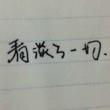 看淡了一切.